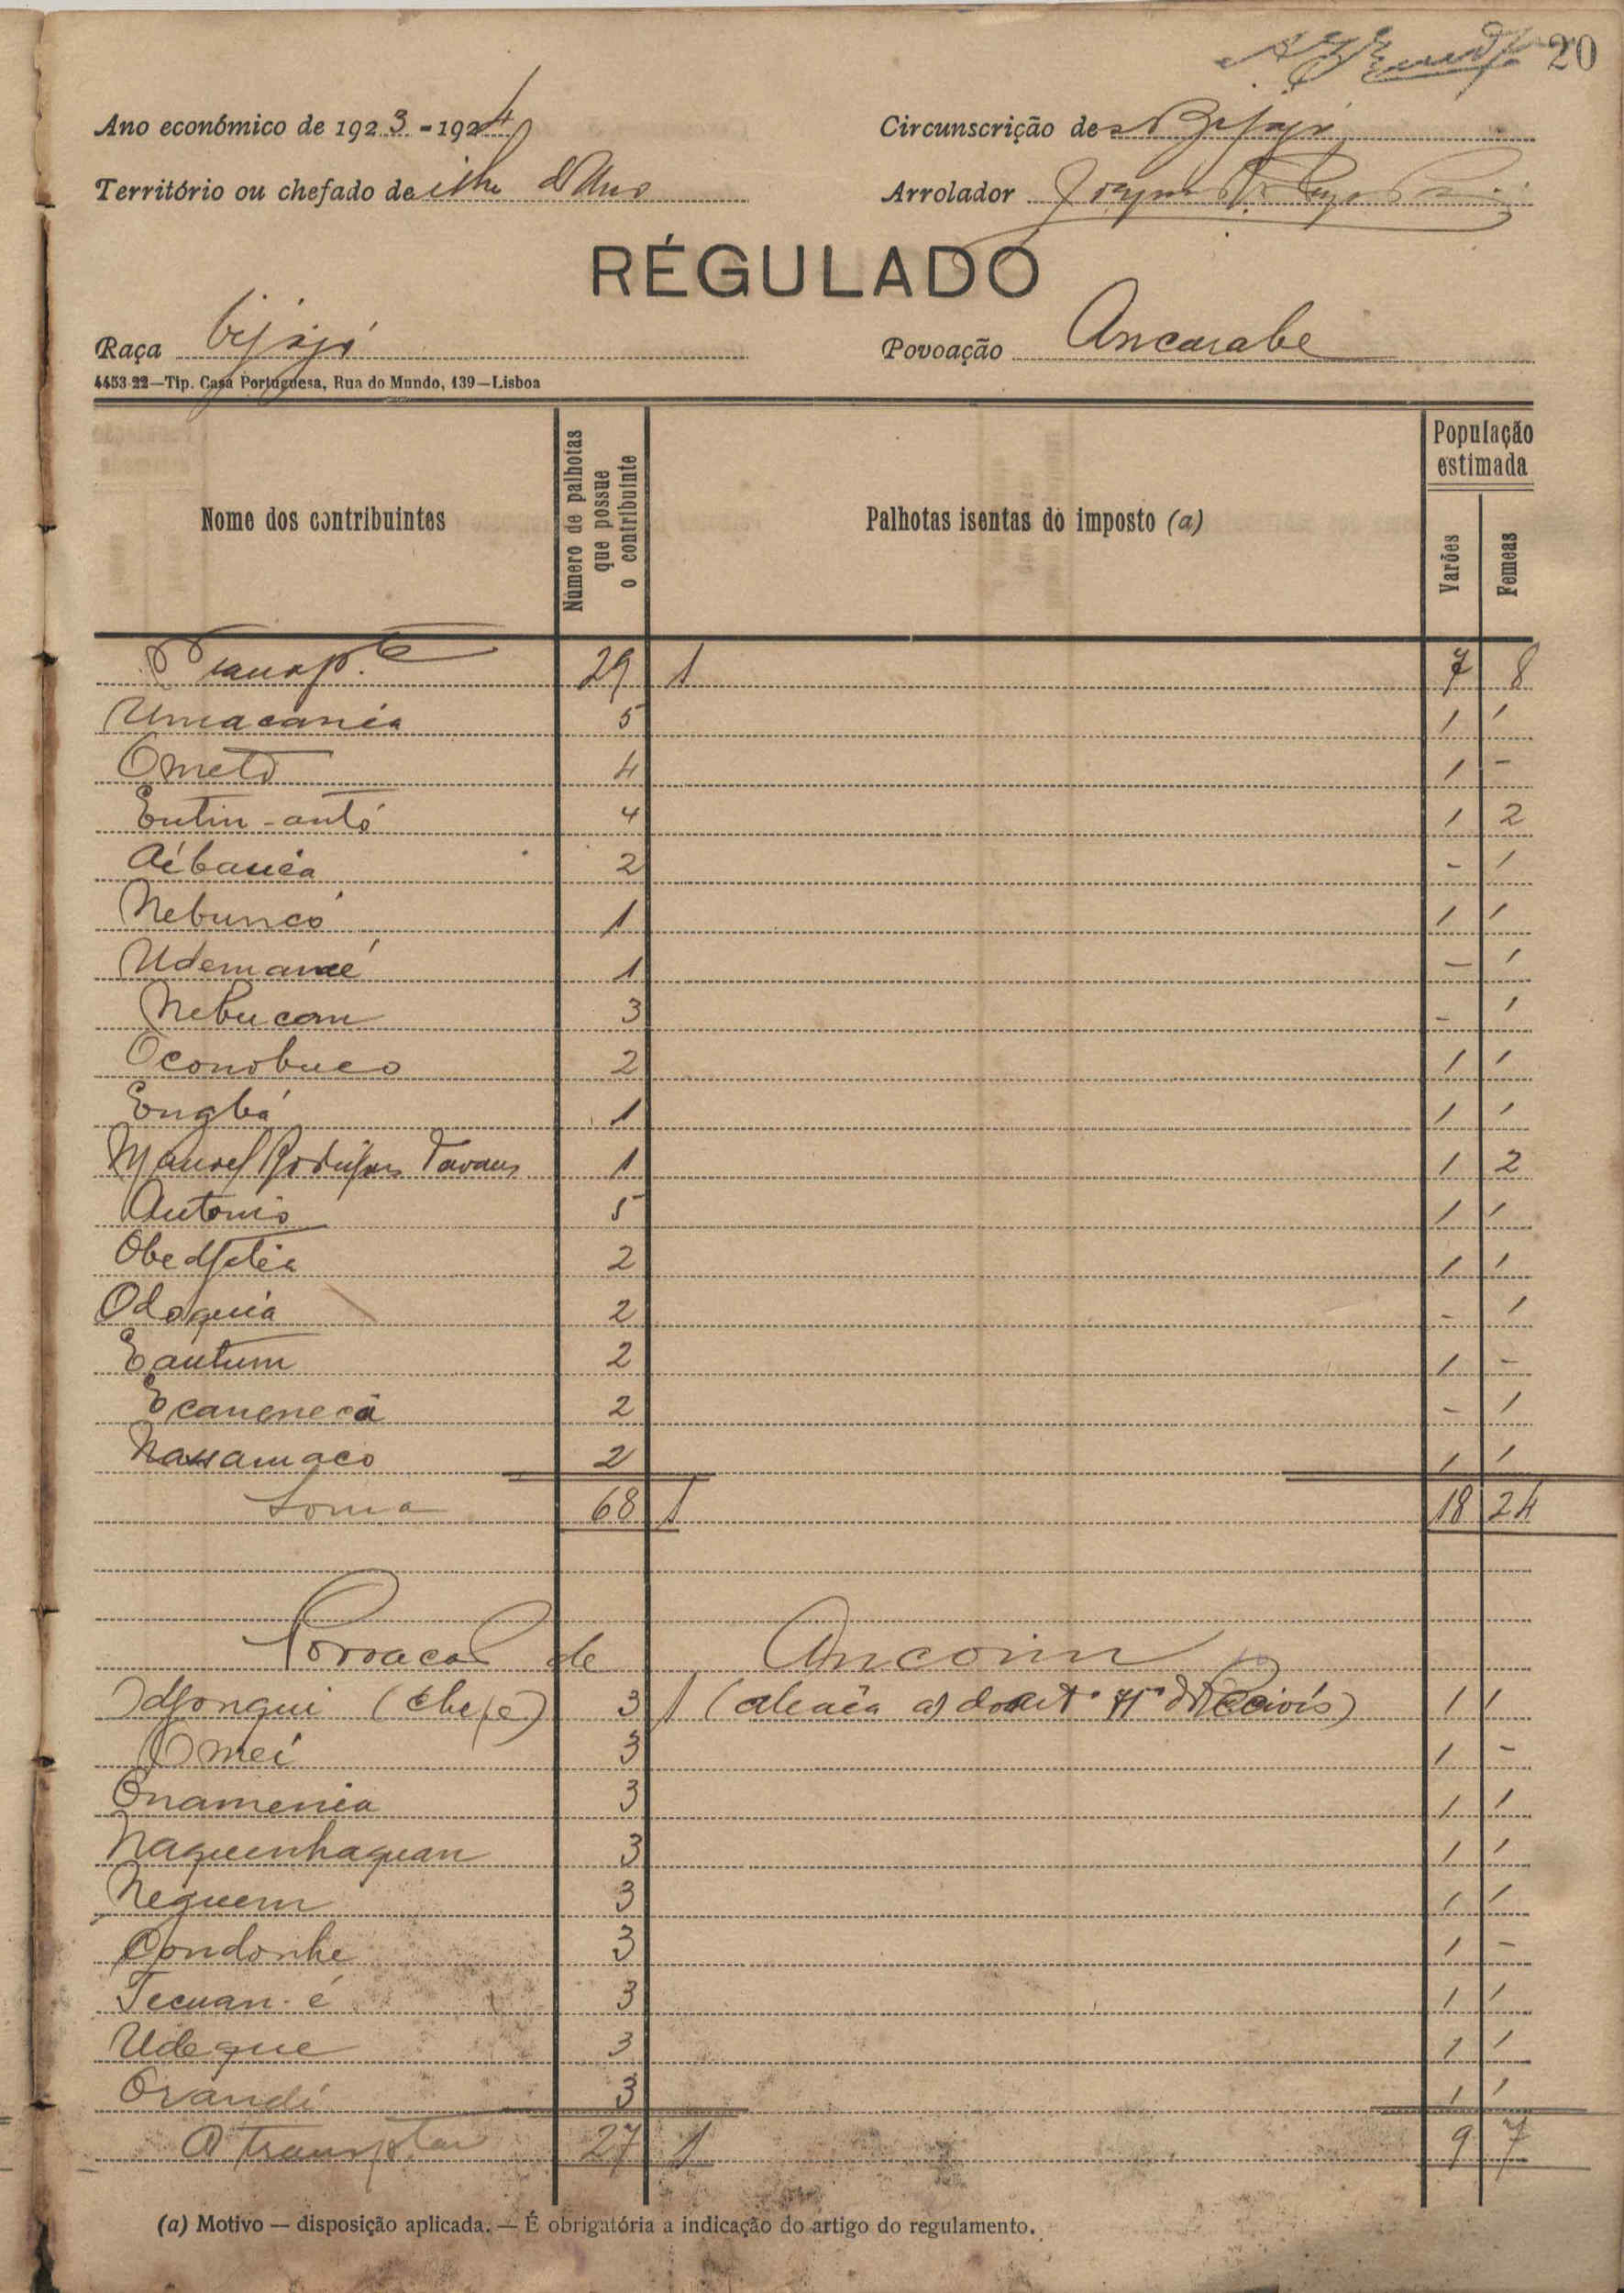 20
Ano económico de 1923-1924 Circunscrição de Bijagó
Território ou chefado de ilha d'Uno Arrolador
RÉGULADO
Raça bijagó Povoação Ancarabe
4453-22—Tip. Casa Portuguesa, Rua do Mundo, 139—Lisboa
Nome dos contribuintes Número de palhotas que possue o contribuinte Palhotas isentas do imposto (a) População estimada Varões Femeas
Transpte 29 1 7 8
Umacania 5 1 1
Ometó 4 1 -
Entin-antó 4 1 2
Aíbanca 2 - 1
Nebuncó 1 1 1
Udemané 1 - 1
Nebucam 3 - 1
Oconobuco 2 1 1
Engbá 1 1 1
Manoel Rodrigues Tavares 1 1 2
Antonio 5 1 1
2 1 1
Odoquia 2 - 1
Eautum 2 1 -
Ecanenecá 2 - 1
Nassamaco 2 1 1
Soma 68 1 18 24
Povoação de Anconin
Idjongui (chefe) 3 1 1 1
Omeí 3 1 -
Onamenia 3 1 1
Naquenhaquan 3 1 1
Neguem 3 1 1
Condonhe 3 1 -
Tecuan-é 3 1 1
Udeque 3 1 1
Orandí 3 1 1
A transptar 27 1 9 7
(a) Motivo — disposição aplicada. — É obrigatória a indicação do artigo do regulamento.